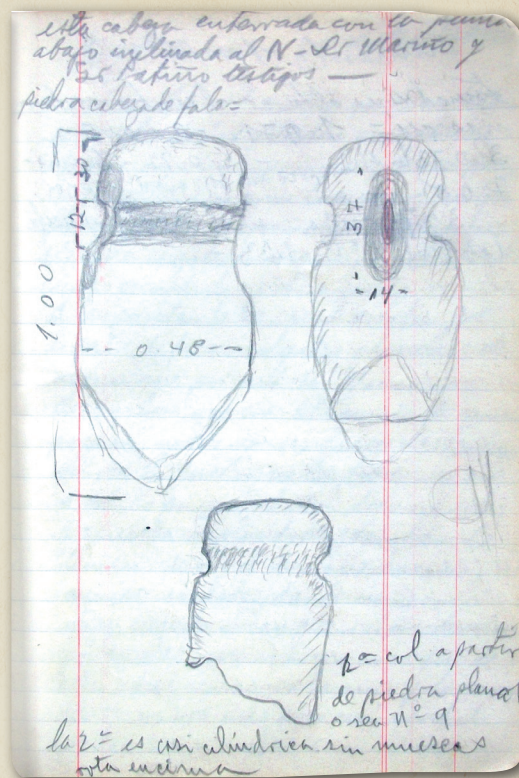 esta cabeza enterrada con la punta
abajo inclinada al N - Sr Mariño y
Sr Patiño testigos —
piedra cabeza de pala =
30
12
1.00
0.48
37
14
col a partir
de piedra plana
o sea nº 9
la 2ª es casi cilíndrica sin muescas
rota encima